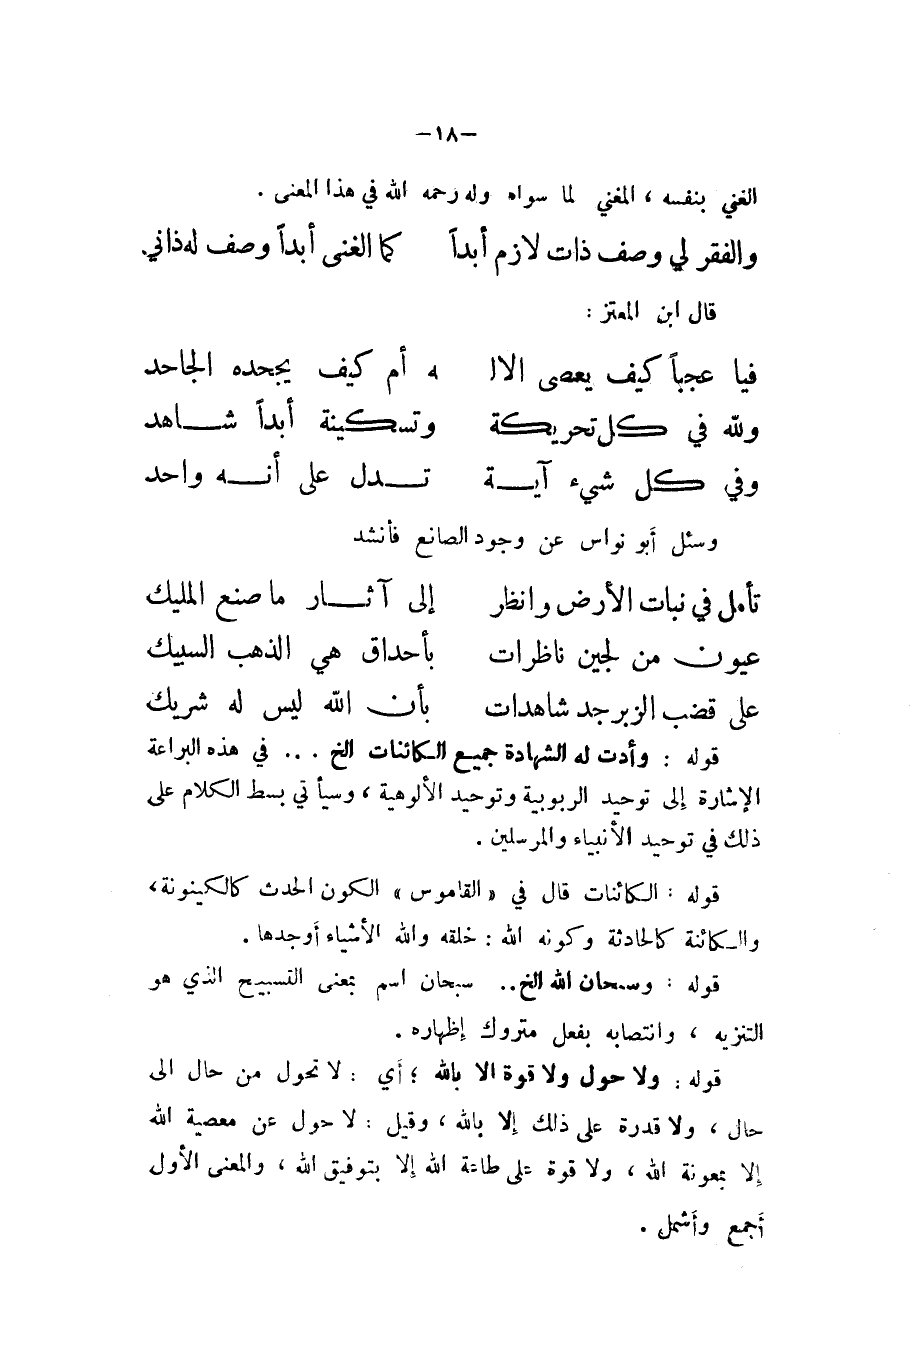 —١٨—
الغني بنفسه ، المغني لما سواه وله رحمه الله في هذا المعنى .
والفقر لي وصف ذات لازم أبداً كما الغنى أبداً وصف له ذاتي.
قال ابن المعتز :
فيا عجباً كيف يعصى الالا ه أم كيف يجحده الجاحد
ولله في كل تحريكة وتسكينة أبداً شـاهد
وفي كل شيء آيـة تـدل على أنـه واحد
وسئل أبو نواس عن وجود الصانع فأنشد
تأمل في نبات الأرض وانظر إلى آثـار ما صنع المليك
عيون من لجين ناظرات بأحداق هي الذهب السبيك
على قضب الزبرجد شاهدات بأن الله ليس له شريك
قوله : وأدت له الشهادة جميع الكائنات الخ ... في هذه البراعة
الإشارة إلى توحيد الربوبية وتوحيد الألوهية ، وسيأتي بسط الكلام على
ذلك في توحيد الأنبياء والمرسلين .
قوله : الكائنات قال في « القاموس » الكون الحدث كالكينونة،
والكائنة كالحادثة وكونه الله : خلقه والله الأشياء أوجدها .
قوله : وسبحان الله الخ.. سبحان اسم بمعنى التسبيح الذي هو
التنزيه ، وانتصابه بفعل متروك إظهاره .
قوله : ولا حول ولا قوة الا بالله ؛ أي : لا تحول من حال الى
حال ، ولا قدرة على ذلك إلا بالله ، وقيل : لا حول عن معصية الله
إلا بمعونة الله ، ولا قوة على طاعة الله إلا بتوفيق الله ، والمعنى الأول
أجمع وأشمل .